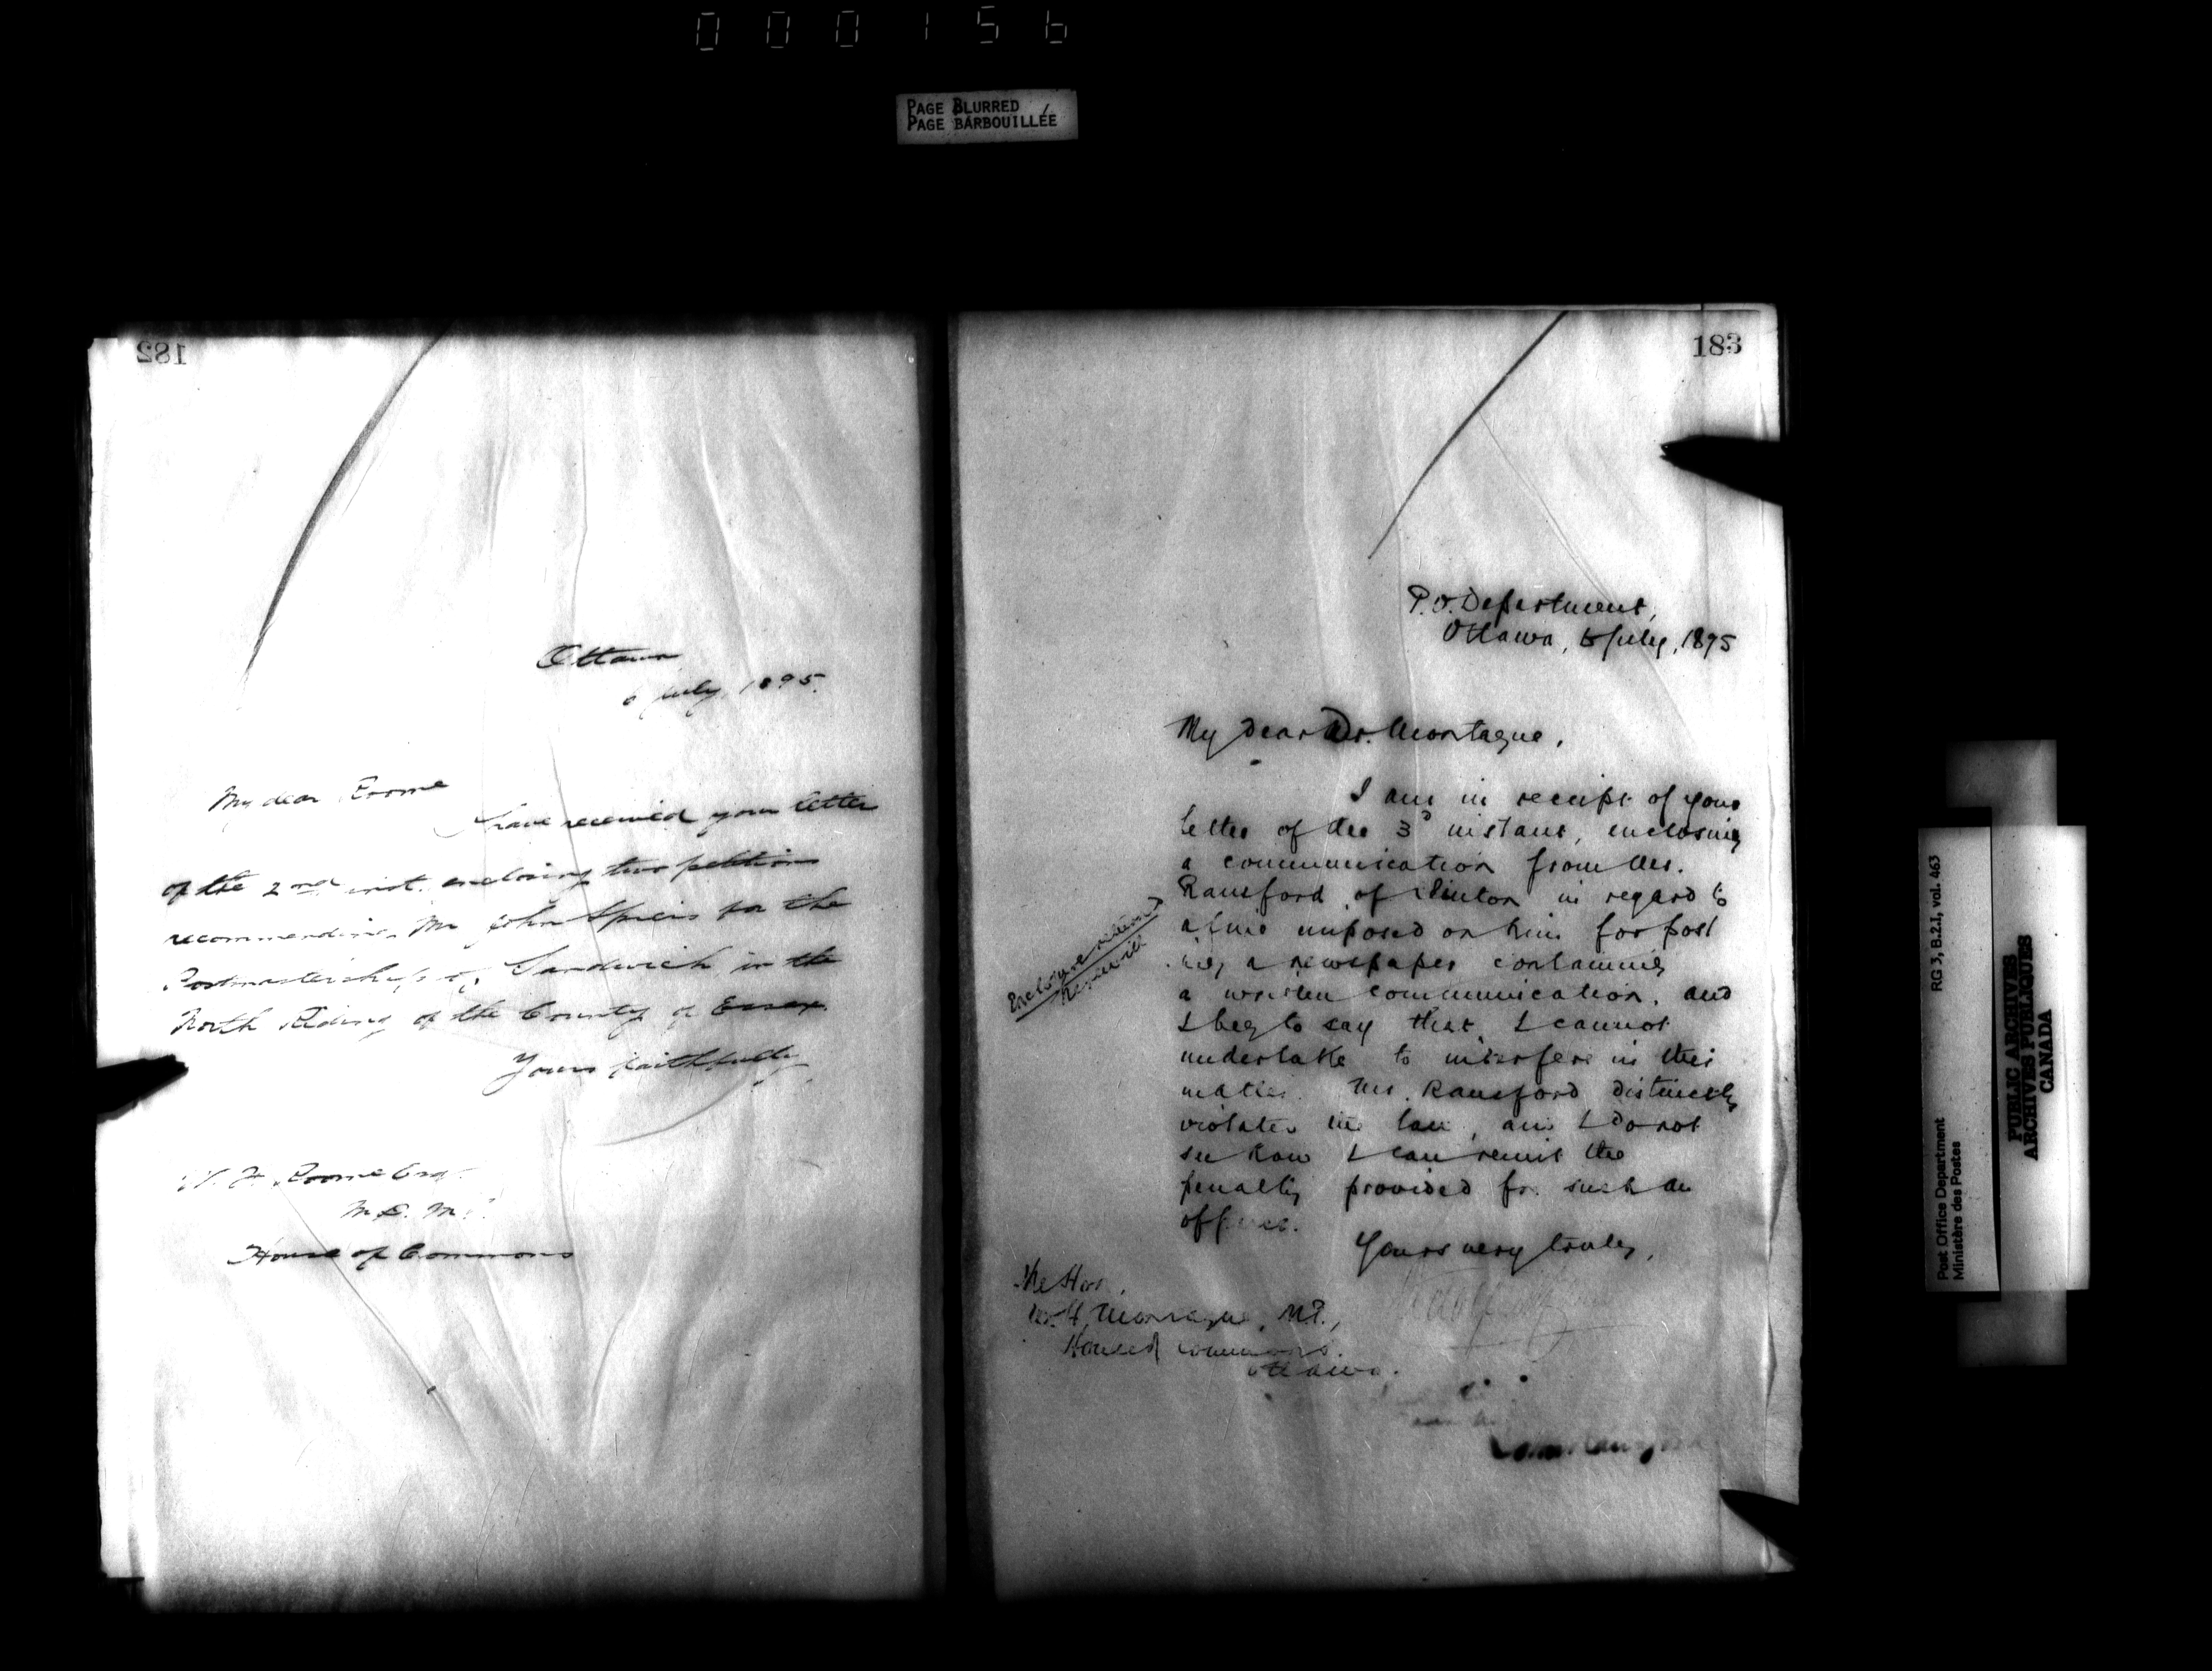 000156
PAGE BLURRED
PAGE BARBOUILLÉE
182
Ottawa
6 July, 1895.
My dear Roome
I have received your letter
of the 2nd inst. enclosing two petitions
recommending Mr John Spiers for the
Postmastership of Sandwich in the
North Riding of the County of Essex.
Yours faithfully
W. F. Roome Esq.
M.D. M.P.
House of Commons
183
P.O. Department,
Ottawa, 6 July, 1895
My dear Dr. Montague,
I am in receipt of your
letter of the 3d instant, enclosing
a communication from Mr.
Ransford of Clinton in regard to
a fine imposed on him for post
ing a newspaper containing
a written communication, and
I beg to say that I cannot
undertake to interfere in this
matter. Mr. Ransford distinctly
violated the law, and I do not
see how I can remit the
penalty provided for such an
offence.
Yours very truly,
Enclosure returned
herewith
The Hon.
W. H. Montague, M.P.,
House of Commons.
Ottawa.
Ransford
RG 3, B.2.I, vol. 463
Post Office Department
Ministère des Postes
PUBLIC ARCHIVES
ARCHIVES PUBLIQUES
CANADA